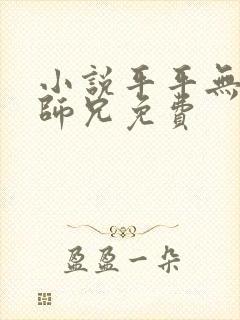 小說平平無
師兄免費
盈盈一朵